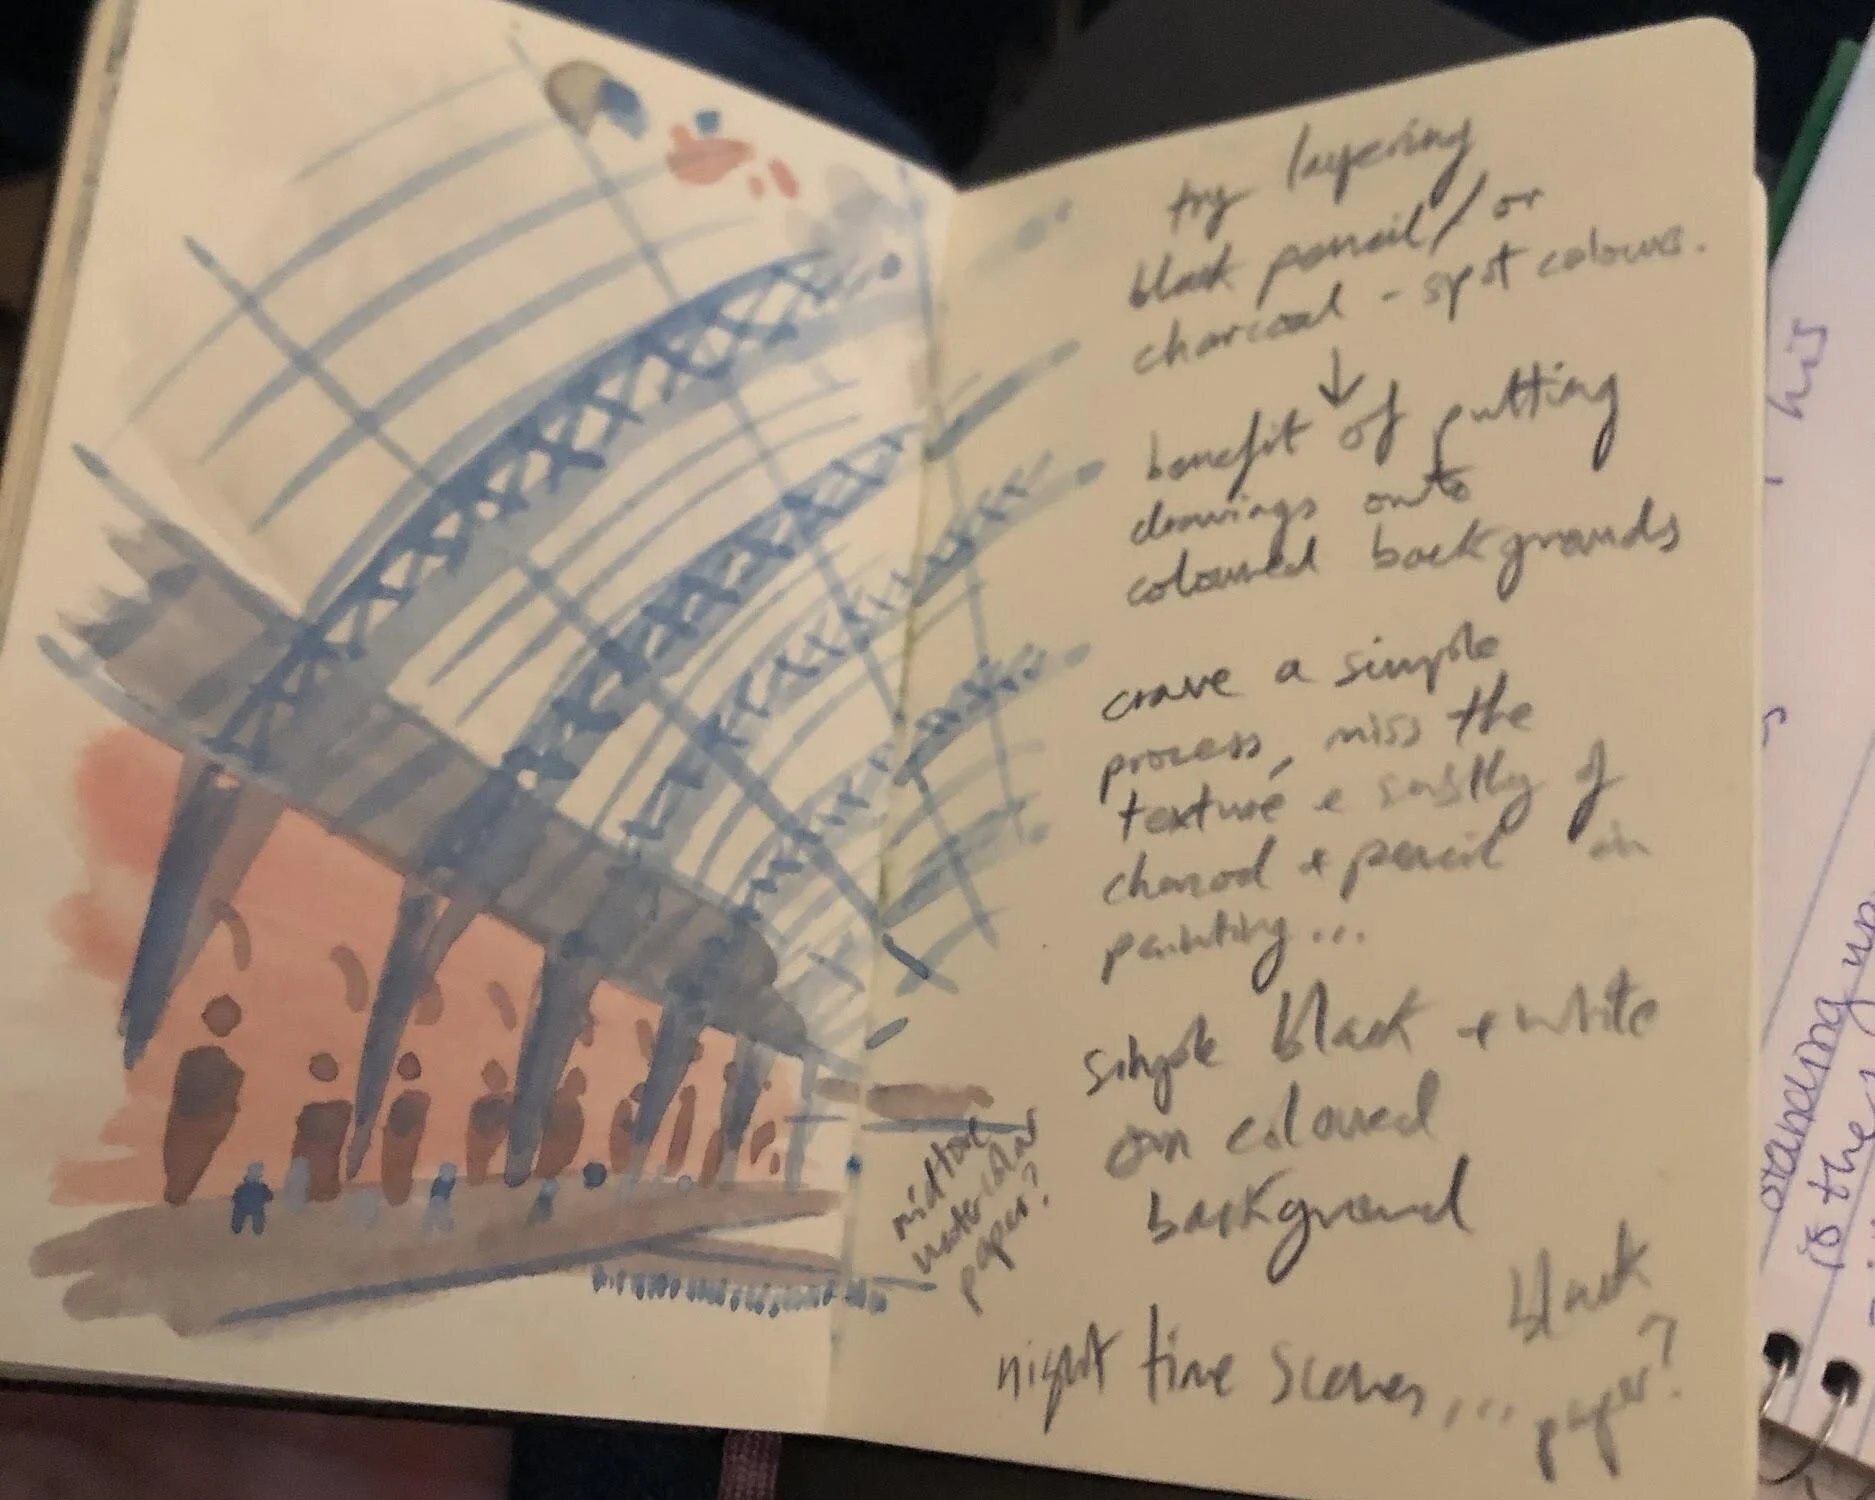 try layering
black pencil / or
charcoal - spot colours.
↓
benefit of putting
drawings onto
coloured backgrounds
crave a simple
process, miss the
texture & of
charcoal + pencil in
painting...
simple black + white
on coloured
background
midtone
watercolour
paper?
night time scenes...
black
paper?
his
standing up
is the